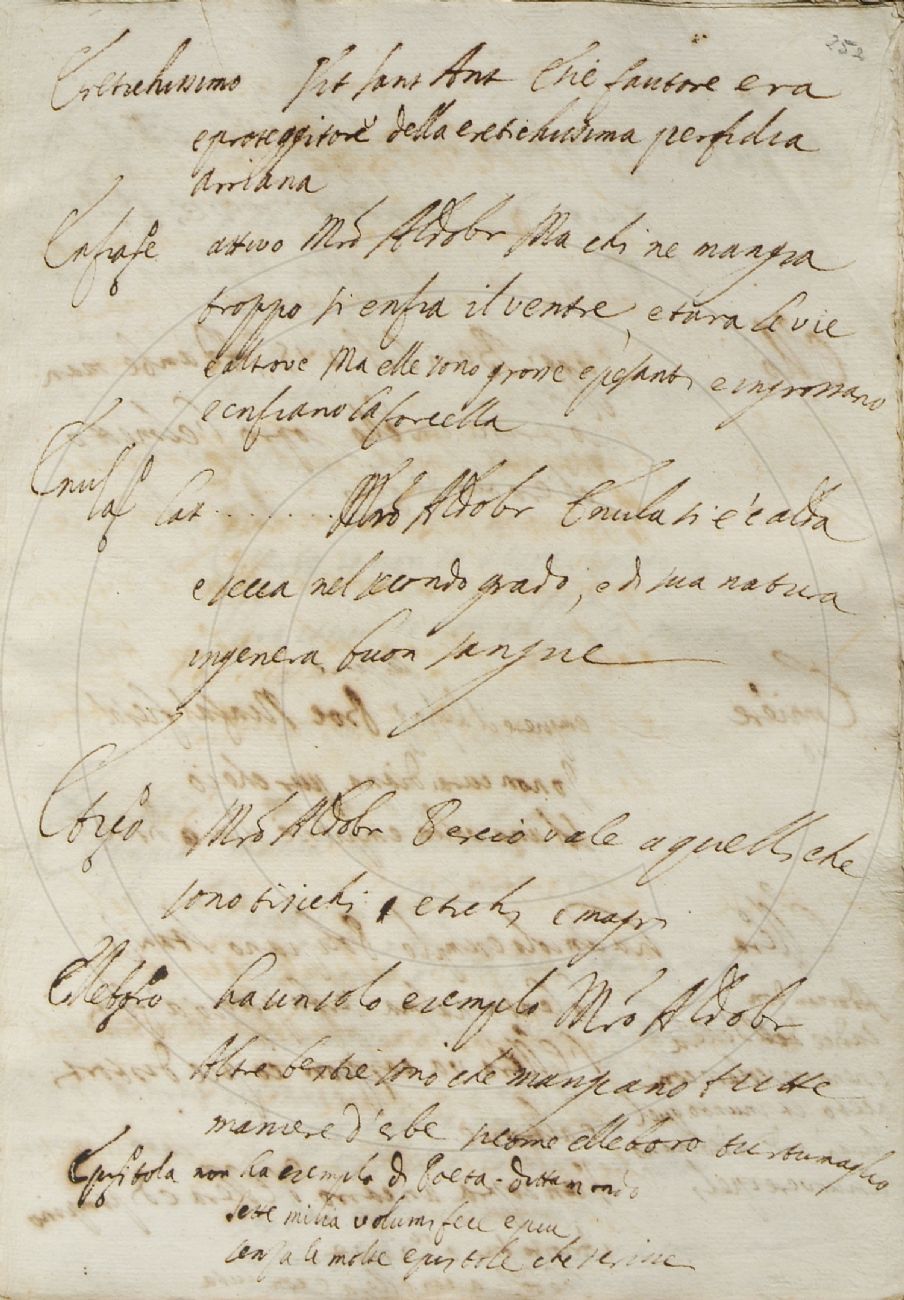 252
Eretichissimo Vit Sant Ant Che fautore era
e proteggitore della eretichissima perfidia
arriana
Enfiare attivo Mro Aldobr Ma chi ne mangia
troppo si enfia il ventre, e tura le vie
e altrove Ma elle sono grosse e pesanti e ingrossano
e enfiano la forcella
Enula
lat . . . . . . . Mro Aldobr Enula si è calda
e secca nel secondo grado, e di sua natura
ingenera buon sangue
Etico Mro Aldobr Perciò vale a quelli che
sono tisichi, etichi e magri
Elleboro ha un solo esemplo Mro Aldobr
Altre bestie sono che mangiano tutte
maniere d'erbe siccome elleboro turtumaglio
Epistola non ha esemplo di Poeta - Dittamondo
sette milia volumi fece e piu
senza le molte epistole che scrisse